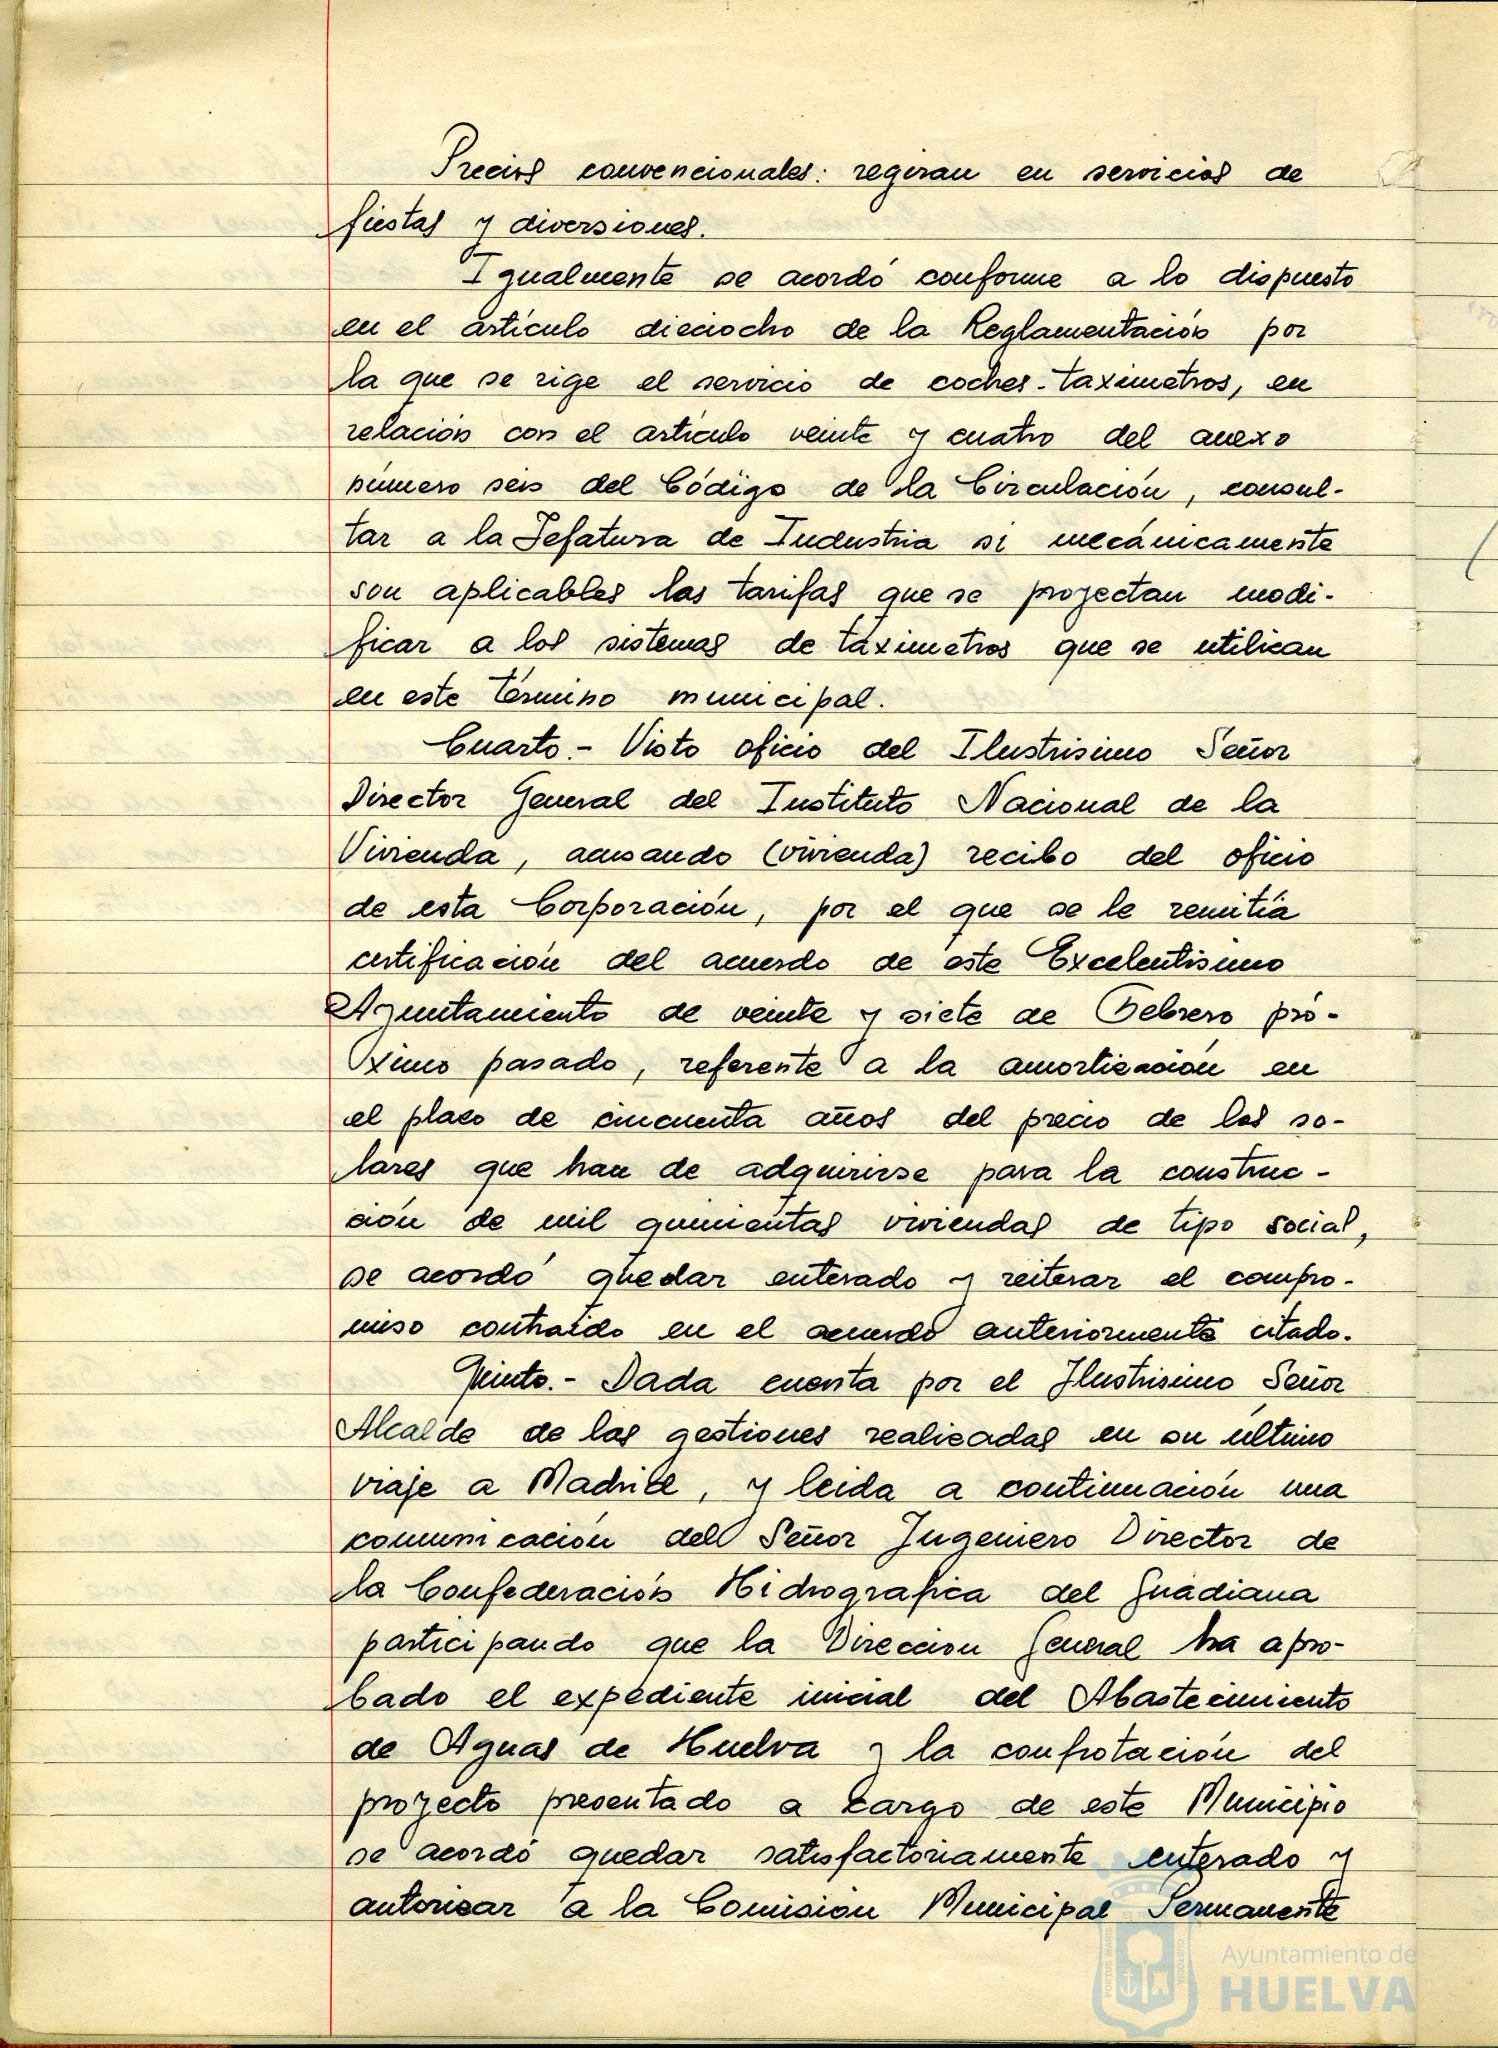 Precios convencionales: regiran en servicios de
fiestas y diversiones.
Igualmente se acordó conforme a lo dispuesto
en el artículo dieciocho de la Reglamentación por
la que se rige el servicio de coches-taximetros, en
relación con el artículo veinte y cuatro del anexo
número seis del Código de la Circulación, consul-
tar a la Jefatura de Industria si mecánicamente
son aplicables las tarifas que se proyectan modi-
ficar a los sistemas de taximetros que se utilizan
en este término municipal.
Cuarto.- Visto oficio del Ilustrisimo Señor
Director General del Instituto Nacional de la
Vivienda, acusando (vivienda) recibo del oficio
de esta Corporación, por el que se le remitía
certificación del acuerdo de este Excelentisimo
Ayuntamiento de veinte y siete de Febrero pró-
ximo pasado, referente a la amortización en
el plazo de cincuenta años del precio de los so-
lares que han de adquirirse para la construc-
ción de mil quinientas viviendas de tipo social,
se acordó quedar enterado y reiterar el compro-
miso contraído en el acuerdo anteriormente citado.
Quinto.- Dada cuenta por el Ilustrisimo Señor
Alcalde de las gestiones realizadas en su último
viaje a Madrid, y leida a continuación una
comunicación del Señor Ingeniero Director de
la Confederación Hidrografica del Guadiana
participando que la Direccion General ha apro-
bado el expediente inicial del Abastecimiento
de Aguas de Huelva y la confrotación del
proyecto presentado a cargo de este Municipio
se acordó quedar satisfactoriamente enterado y
autorizar a la Comision Municipal Permanente
Ayuntamiento de
HUELVA